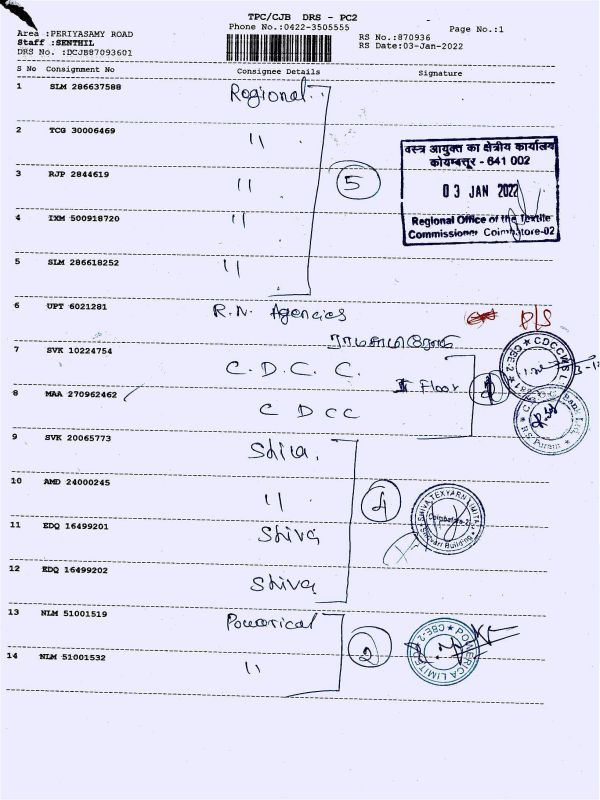 TPC/CJB DRS - PC2
Area :PERIYASAMY ROAD
Phone No.:0422-3505555
Page No.:1
Staff :SENTHIL
RS No.:870936
DRS No. :DCJB87093601
RS Date:03-Jan-2022
S No Consignment No Consignee Details Signature
1 SLM 286637588 Regional
2 TCG 30006469 "
वस्त्र आयुक्त का क्षेत्रीय कार्यालय
कोयम्बत्तूर - 641 002
3 RJP 2844619 " 5
03 JAN 2022
4 IXM 500918720 "
Regional Office of the Textile
Commissioner Coimbatore-02
5 SLM 286618252 "
6 UPT 6021281 R.N. Agencies P/S
7 SVK 10224754 C.D.C.C.
I Floor
8 MAA 270962462 CDCC
9 SVK 20065773 Shiva
10 AMD 24000245 " 4
SHIVA TEXYARN LIMITED
Coimbatore-2
Shivari Building
11 EDQ 16499201 Shiva
12 EDQ 16499202 Shiva
13 NLM 51001519 Powerical
POWERICA LIMITED CBE-2
14 NLM 51001532 " 2